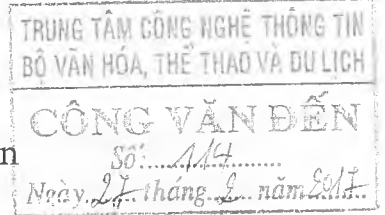 TRUNG TÂM CÔNG NGHỆ THÔNG TIN
BỘ VĂN HÓA, THỂ THAO VÀ DU LỊCH
CÔNG VĂN ĐẾN
n
Số: 114
Ngày 27 tháng 2 năm 2017